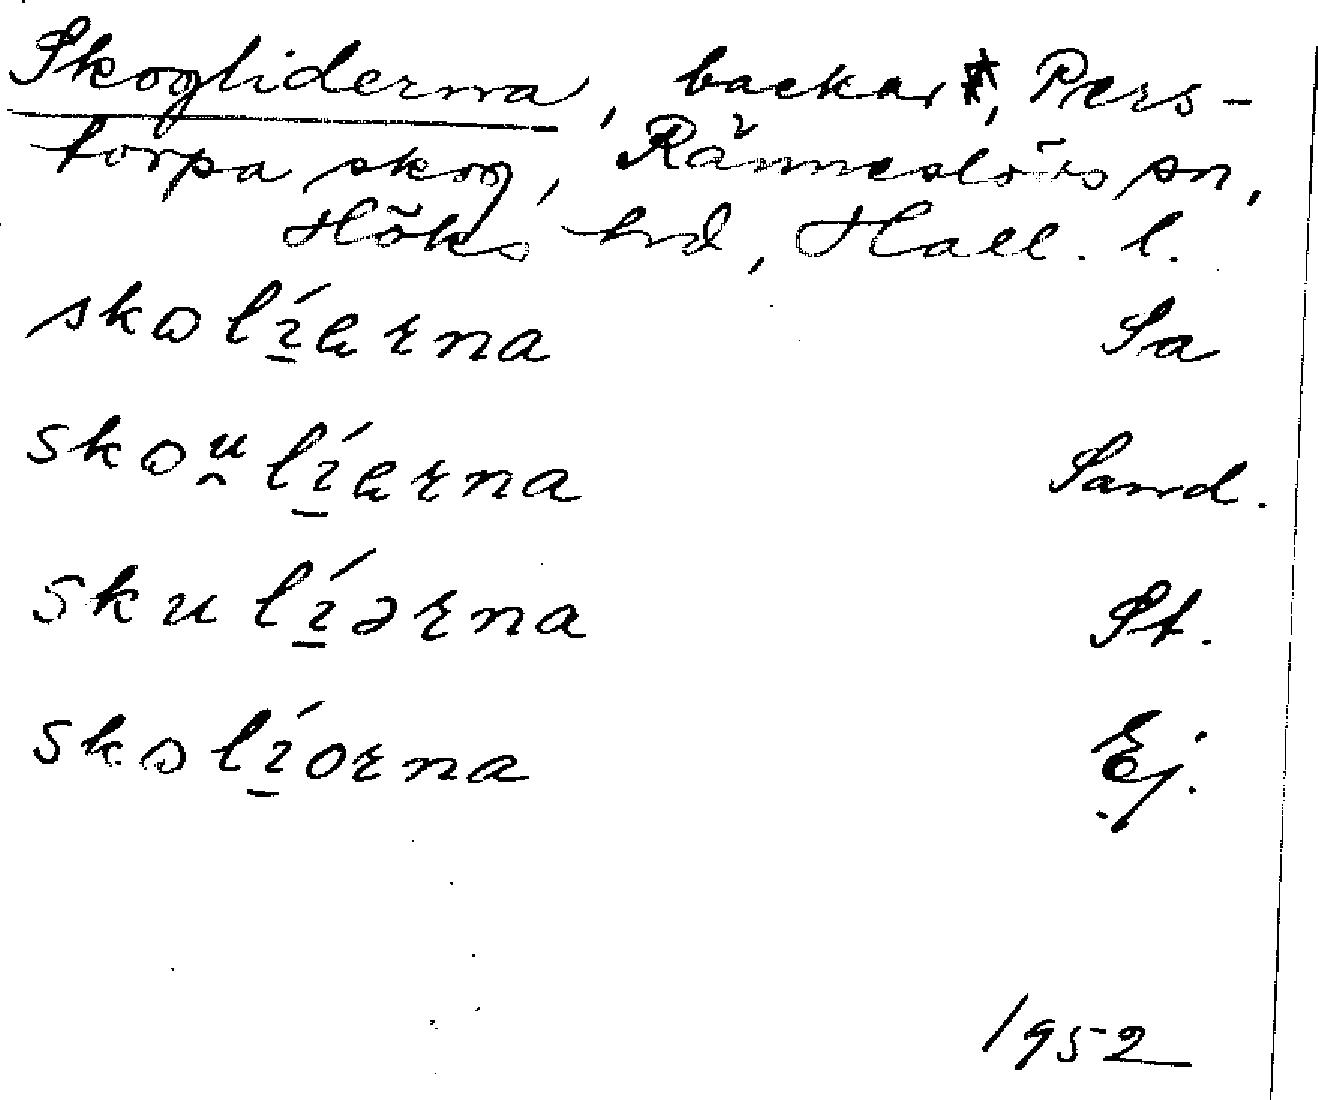 Skogliderna, backar, Pers-
torpa skog, Ränneslövs sn,
Höks hd, Hall. l.
skolíɛrna Sa
skou̯líɛrna Sand.
skulíərna St.
skolíorna Ej.
1952